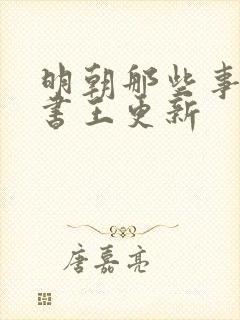 明朝那些事
書王更新
唐嘉亮